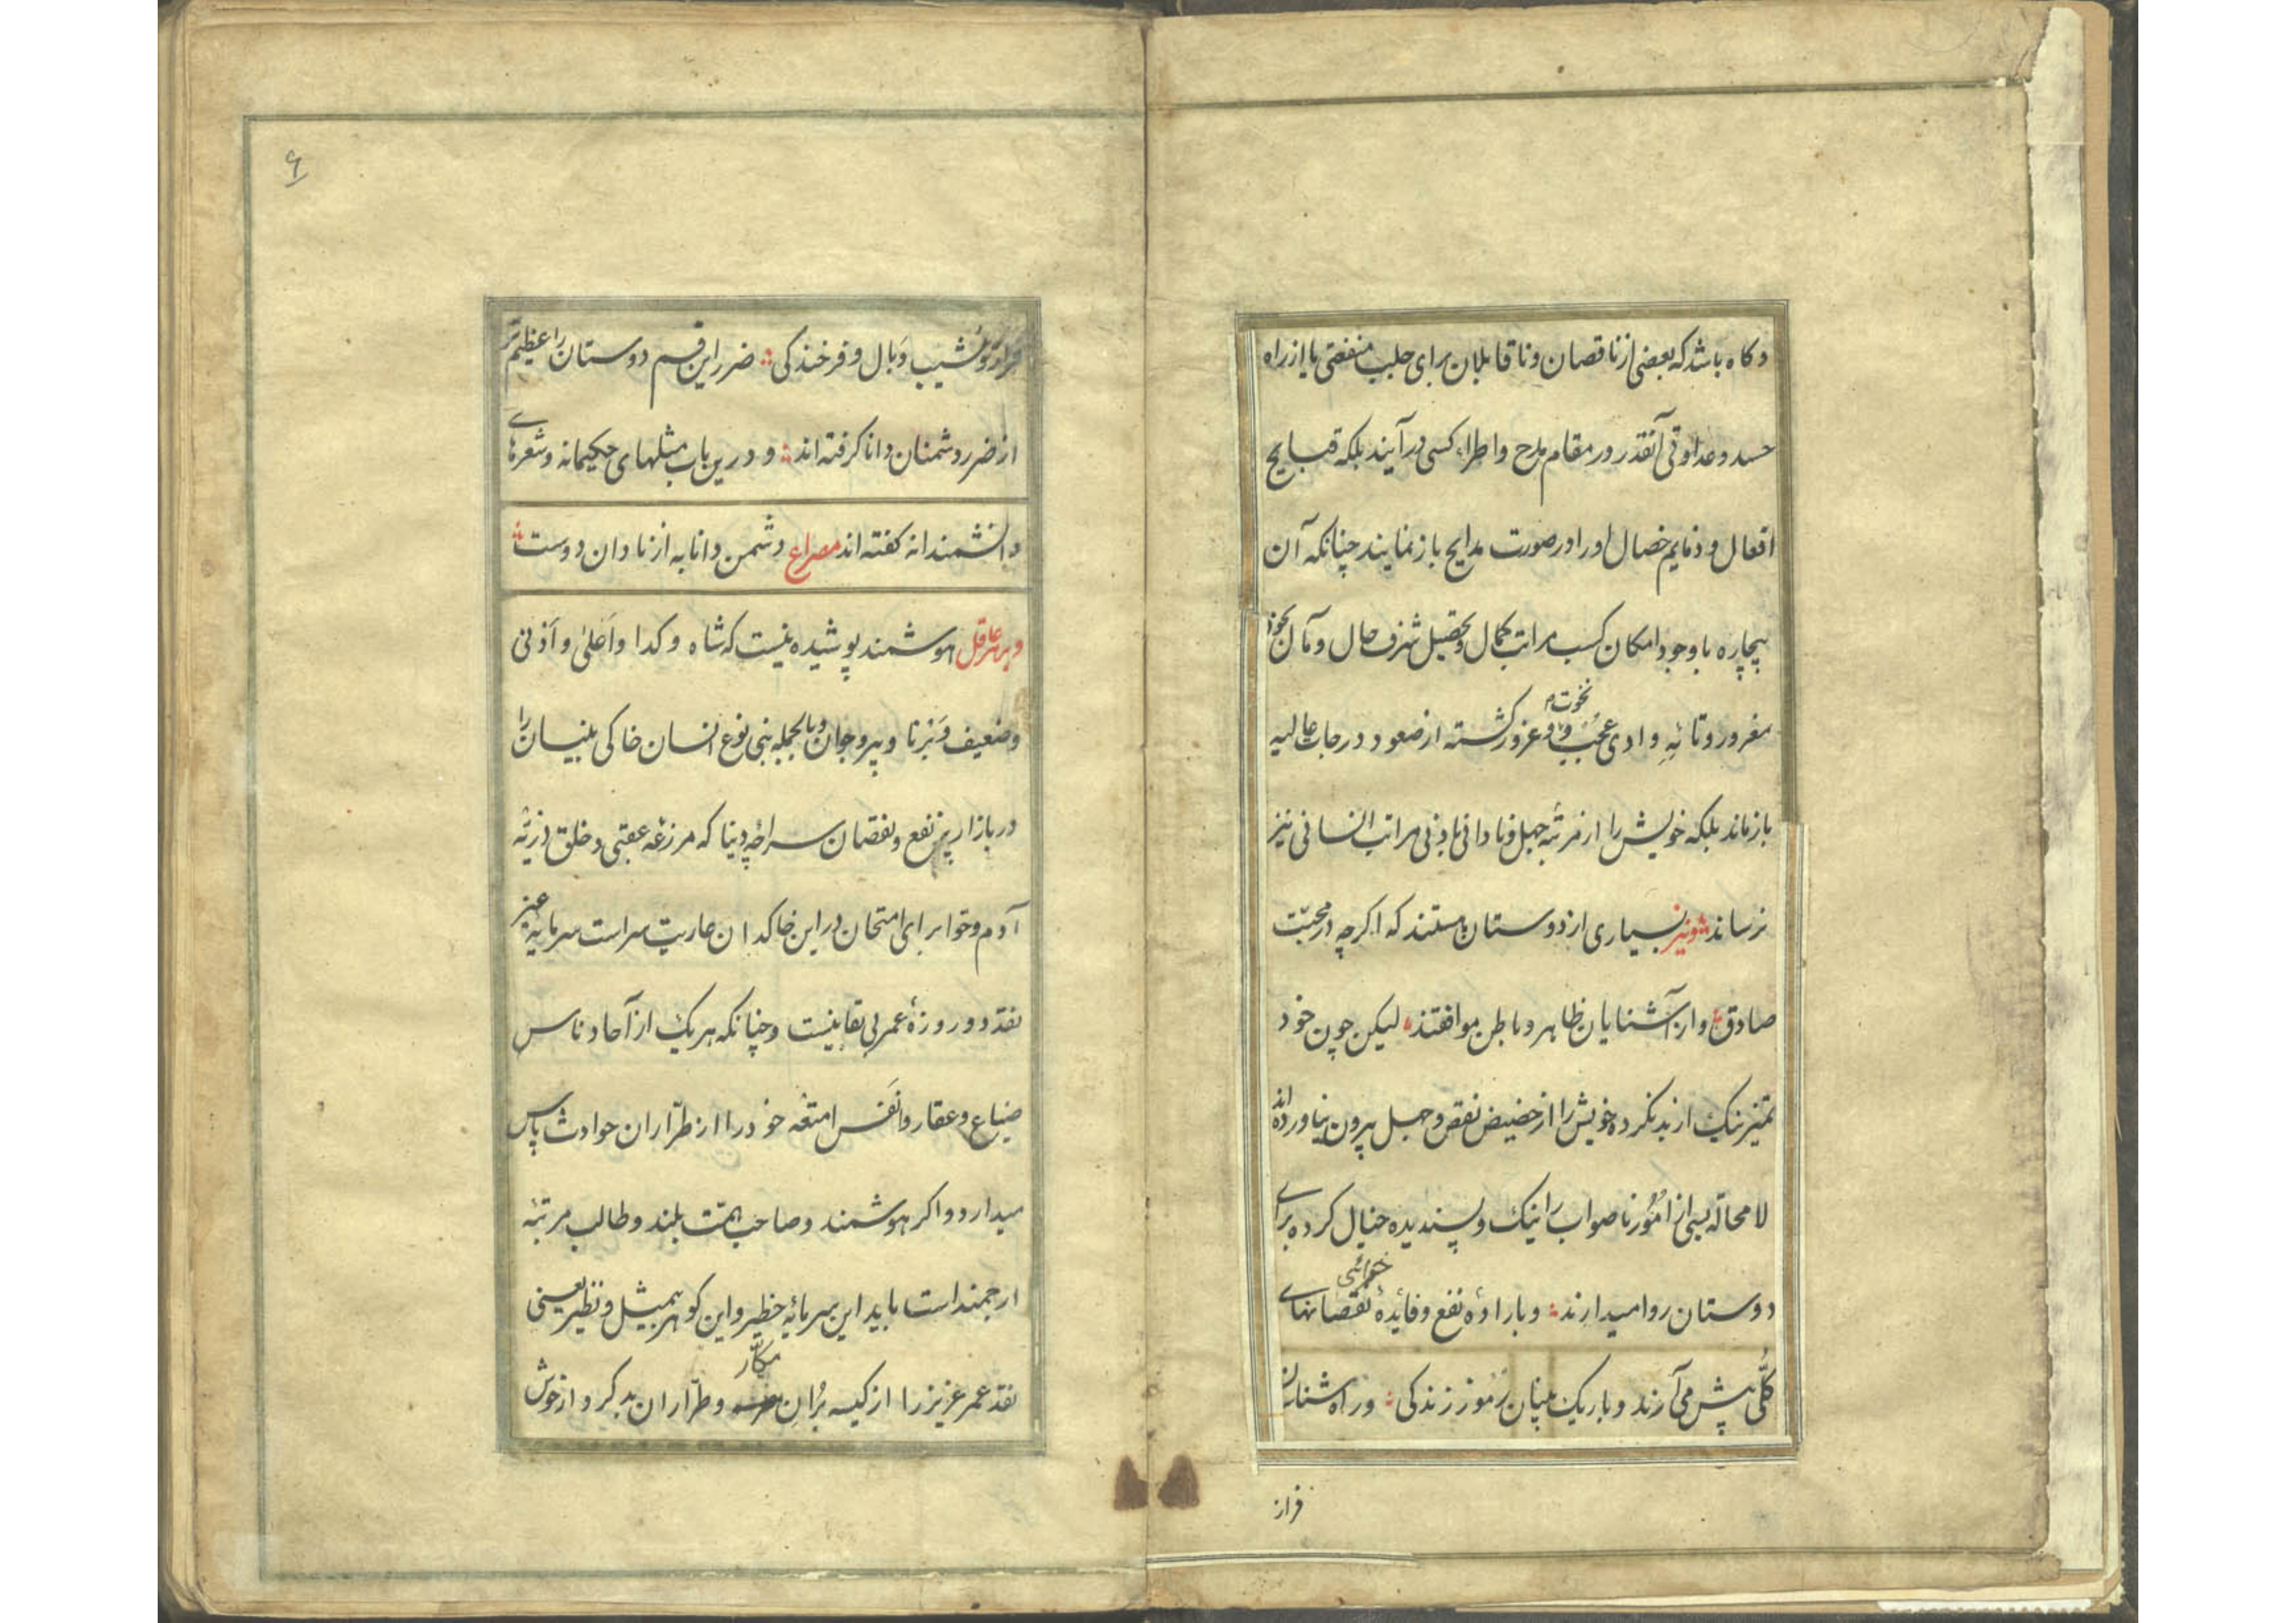 و کاه باشد که بعضی از ناقصان و ناقابلان برای جلب منفعتی یا از راه
حسد و عداوتی آنقدر در مقام مدح و اطراء کسی در آیند بلکه قبایح
افعال و ذمایم خصال او را در صورت مدایح باز نمایند چنانکه آن
بیچاره با وجود امکان کسب مراتب کمال و تحصیل شرف حال و مآل بخود
مغرور و تائهِ وادی عُجُب و نخوت و غرور کشته از صعود درجات عالیه
باز ماند بلکه خویش را از مرتبهٔ جهل و نادانی بادنی مراتب انسانی نیز
نرساند و نیز بسیاری از دوستان هستند که اکرچه در محبّت
صادق و از آشنایان ظاهر و باطن موافقند لیکن چون خود
تمیز نیک از بد نکرده خویش را از حضیض نقص و جهل بیرون نیاورده اند
لا محاله بسی از امُور ناصواب را نیک و پسندیده خیال کرده برای
دوستان روا میدارند و باراده نفع و فائدهٔ جزائی نقصانهای
کُلّی پیش می آرند و باریک بینان رُموز زندکی و راه شناسان
فراز
فراز و نشیب وَبال و فرخندکی ضرر این قسم دوستان را عظیم تر
از ضرر دشمنان دانا کرفته اند و درین باب مثلهای حکیمانه و شعرهای
دانشمندانه کفته اند مصراع دشمن دانا به از نادان دوست
و بر هر عاقل هوشمند پوشیده نیست که شاه و کدا و اَعلیٰ و اَدنی
و ضعیف و بَرنا و پیر و جوان و بالجمله بنی نوع انسان خاکی بنیان را
در بازار پر نفع و نقصان سراچهٔ دنیا که مزرعهٔ عقبی و خلق ذریّه
آدم و حوا برای امتحان در این خاکدان عاریت سراست سرمایه غیر
نقد دو روزهٔ عمر بی بقا نیست و چنانکه هر یک از آحاد ناس
ضیاع و عقار و اَنفَس امتعه خود را از طرّاران حوادث پاس
میدارد و اکر هوشمند و صاحب همّت بلند و طالب مرتبهٔ
ارجمند است باید این سرمایهٔ خطیر و این کوهر بیمثیل و نظیر یعنی
نقد عمر عزیز را از کیسه بُرانِ مکّار و طرّاران بد کرد و از خوش
۶